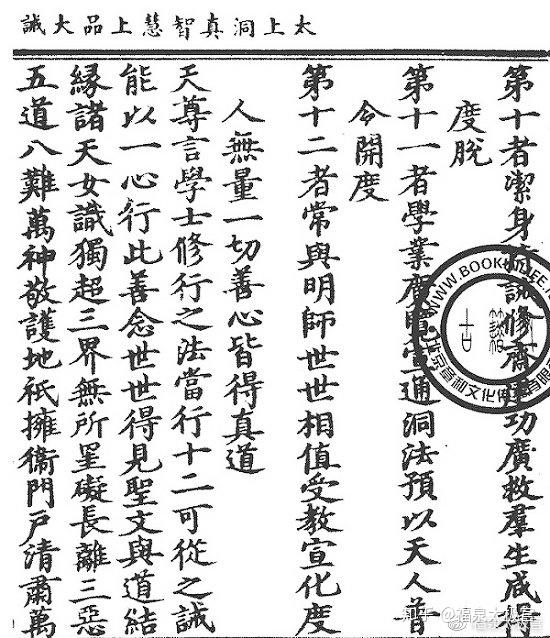 太上洞真智慧上品大誡
第十者潔身誡修齋功廣救羣生咸得
度脫
第十一者學業廣通洞法預以天人普
令開度
第十二者常與明師世世相值受教宣化度
人無量一切善心皆得真道
天尊言學士修行之法當行十二可從之誡
能以一心行此善念世世得見聖文與道結
緣諸天女識獨超三界無所罣礙長離三惡
五道八難萬神敬護地祇擁衞門戶清肅萬
知乎 @福泉太極宮